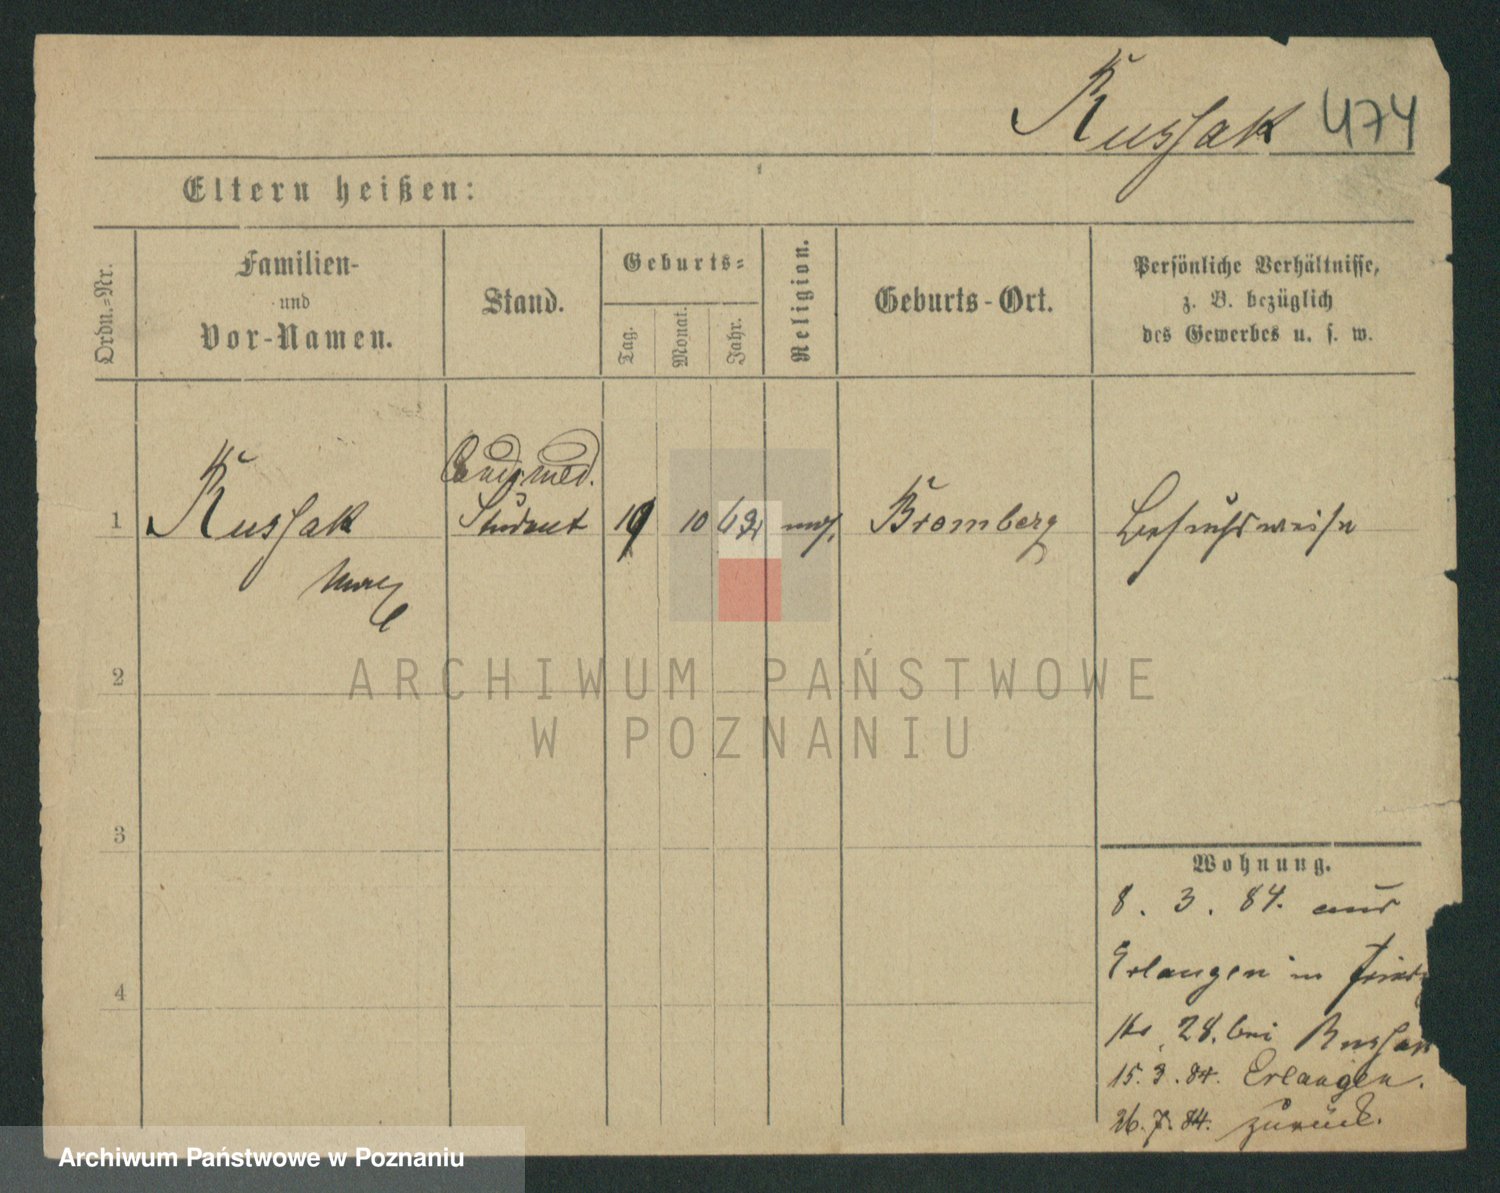 Russak 474
Eltern heißen:
Ordn.-Nr.
Familien-
und
Vor-Namen.
Stand.
Geburts-
Tag.
Monat.
Jahr.
Religion.
Geburts-Ort.
Persönliche Verhältnisse,
z. B. bezüglich
des Gewerbes u. s. w.
Cand. med.
1 Russak Student 19 10 62 mos. Bromberg Besuchsweise
2
ARCHIWUM PAŃSTWOWE
W POZNANIU
3
Wohnung.
8. 3. 84. aus
4
Erlangen in
28. bei Russak
15. 3. 84. Erlangen.
26. 7. 84. zurück.
Archiwum Państwowe w Poznaniu